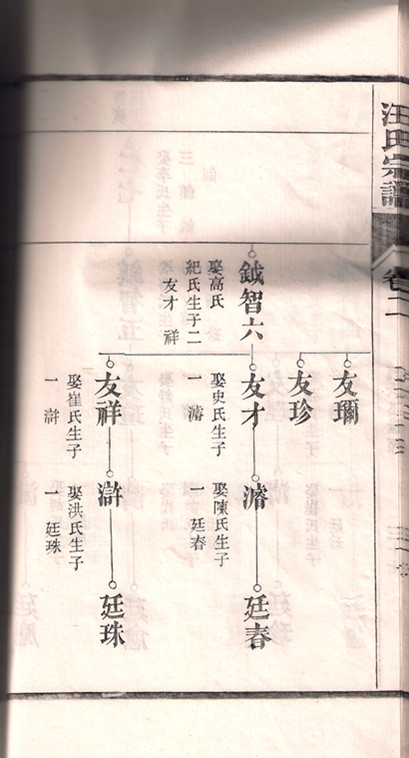 汪氏宗譜
卷二
友珍
友才
娶史氏生子
一濬
濬
娶陳氏生子
一廷春
廷春
鉞智六
娶高氏
紀氏生子二
友才 祥
友祥
娶崔氏生子
一滸
滸
娶洪氏生子
一廷珠
廷珠